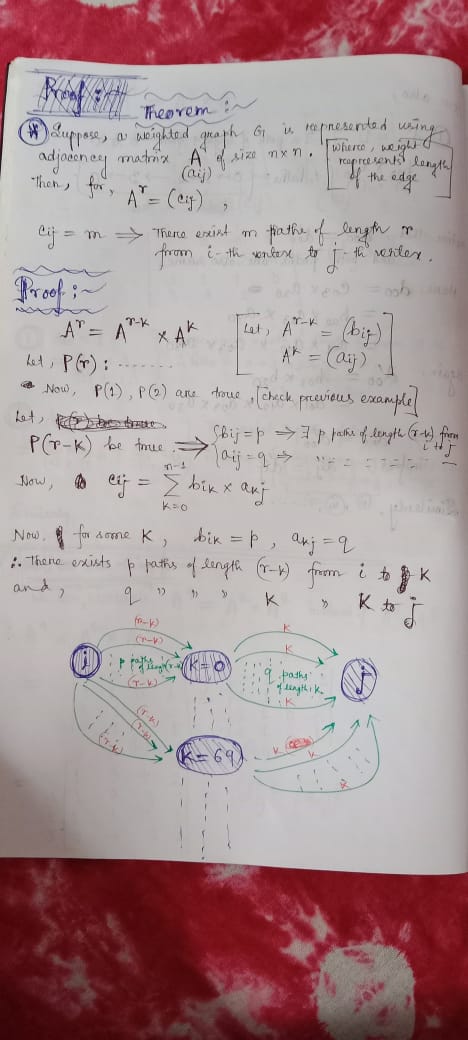 Proof :-
Theorem :-
* Suppose, a weighted graph G is represented using
adjacency matrix A of size n x n.
(aij)
[where, weight
represents length
of the edge]
Then, for, Aʳ = (cij) ,
cij = m ⟹ There exist m paths of length r
from i-th vertex to j-th vertex.
Proof :-
Aʳ = Aʳ⁻ᵏ x Aᵏ
[Let, Aʳ⁻ᵏ = (bij)
Aᵏ = (aij)]
Let, P(r) : .......
Now, P(1), P(2) are true, [check previous example]
Let,
P(r-k) be true. ⟹ { bij = p ⟹ ∃ p paths of length (r-k) from i to j
aij = q ⟹ " = = = = –
Now, cij = Σ bik x akj
n-1
k=0
Now, for some K, bik = p , akj = q
∴ There exists p paths of length (r-k) from i to K
and, q " " " K " K to j
(r-k)
(r-k)
K
K
i
p paths
of length (r-k)
(r-k)
k=0
q paths
of length: K.
K
j
(r-k)
(r-k)
(r-k)
k=69
K
K
K